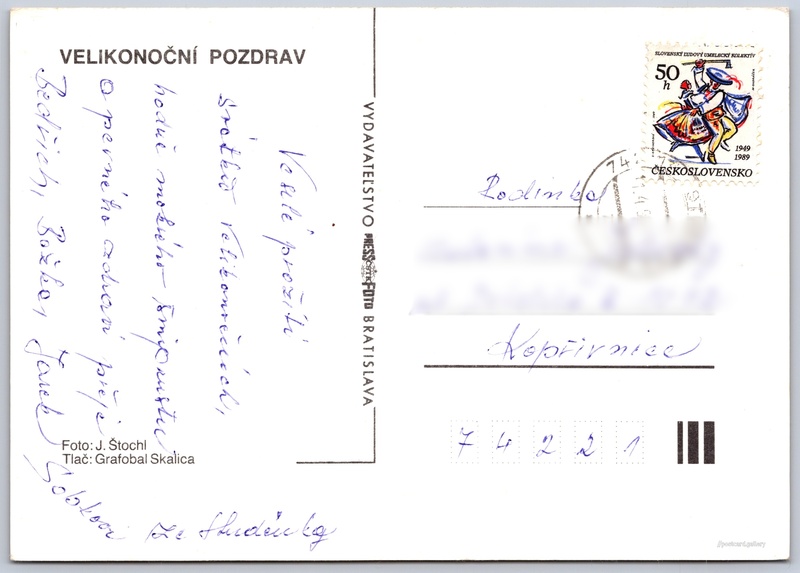 VELIKONOČNÍ POZDRAV
Veselé prožití
Velikonočních,
hodně mokrého šmigrustu
a pevného zdraví přeje
Bedřich, Božka, Jarek
ze Studénky
Foto: J. Štochl
Tlač: Grafobal Skalica
VYDAVATEĽSTVO PRESSFOTO BRATISLAVA
SLOVENSKÝ ĽUDOVÝ UMELECKÝ KOLEKTÍV
50 h
1949
1989
ČESKOSLOVENSKO
74
Rodinka
Kopřivnice
7 4 2 2 1
//postcard.gallery